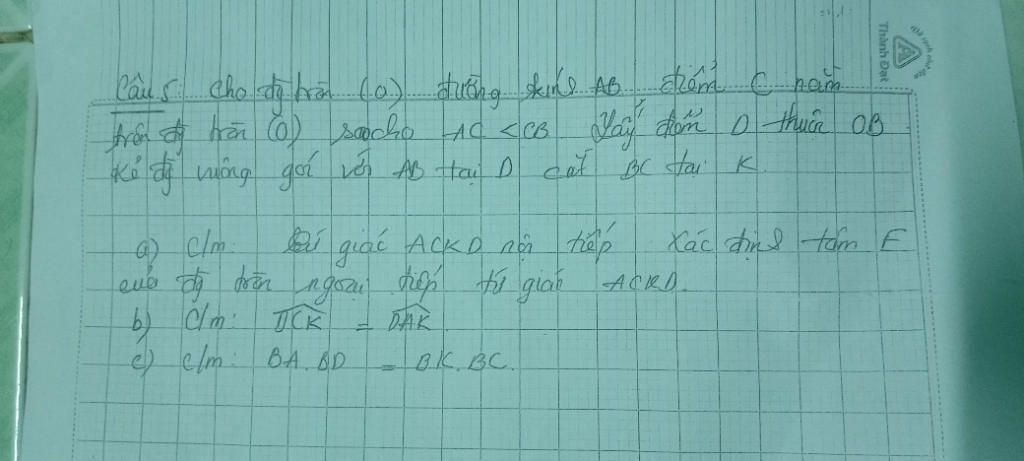 Thành Đạt
Câu 5 Cho đg tròn (O) đường kính AB điểm C nằm
trên đg tròn (O) sao cho AC < CB Lấy điểm D thuộc OB
Kẻ đg vuông góc với AB tại D cắt BC tại K.
a) C/m: tứ giác ACKD nội tiếp Xác định tâm F
của đg tròn ngoại tiếp tứ giác ACKD.
b) C/m: DCK = DAK
c) c/m: BA. BD = BK. BC.